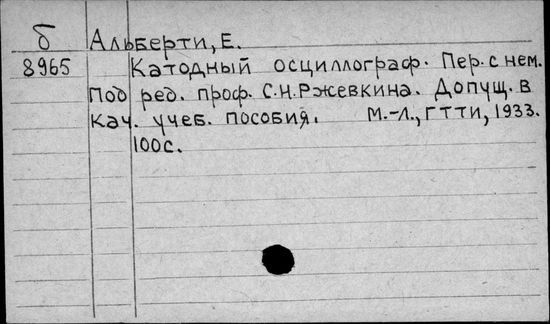 б Альберти, Е.
8965 Катодный осциллограф. Пер. с нем.
Под ред. проф. С.Н.Ржевкина. Допущ. в
кач. учеб. пособия. М.-Л., ГТТИ, 1933.
100с.